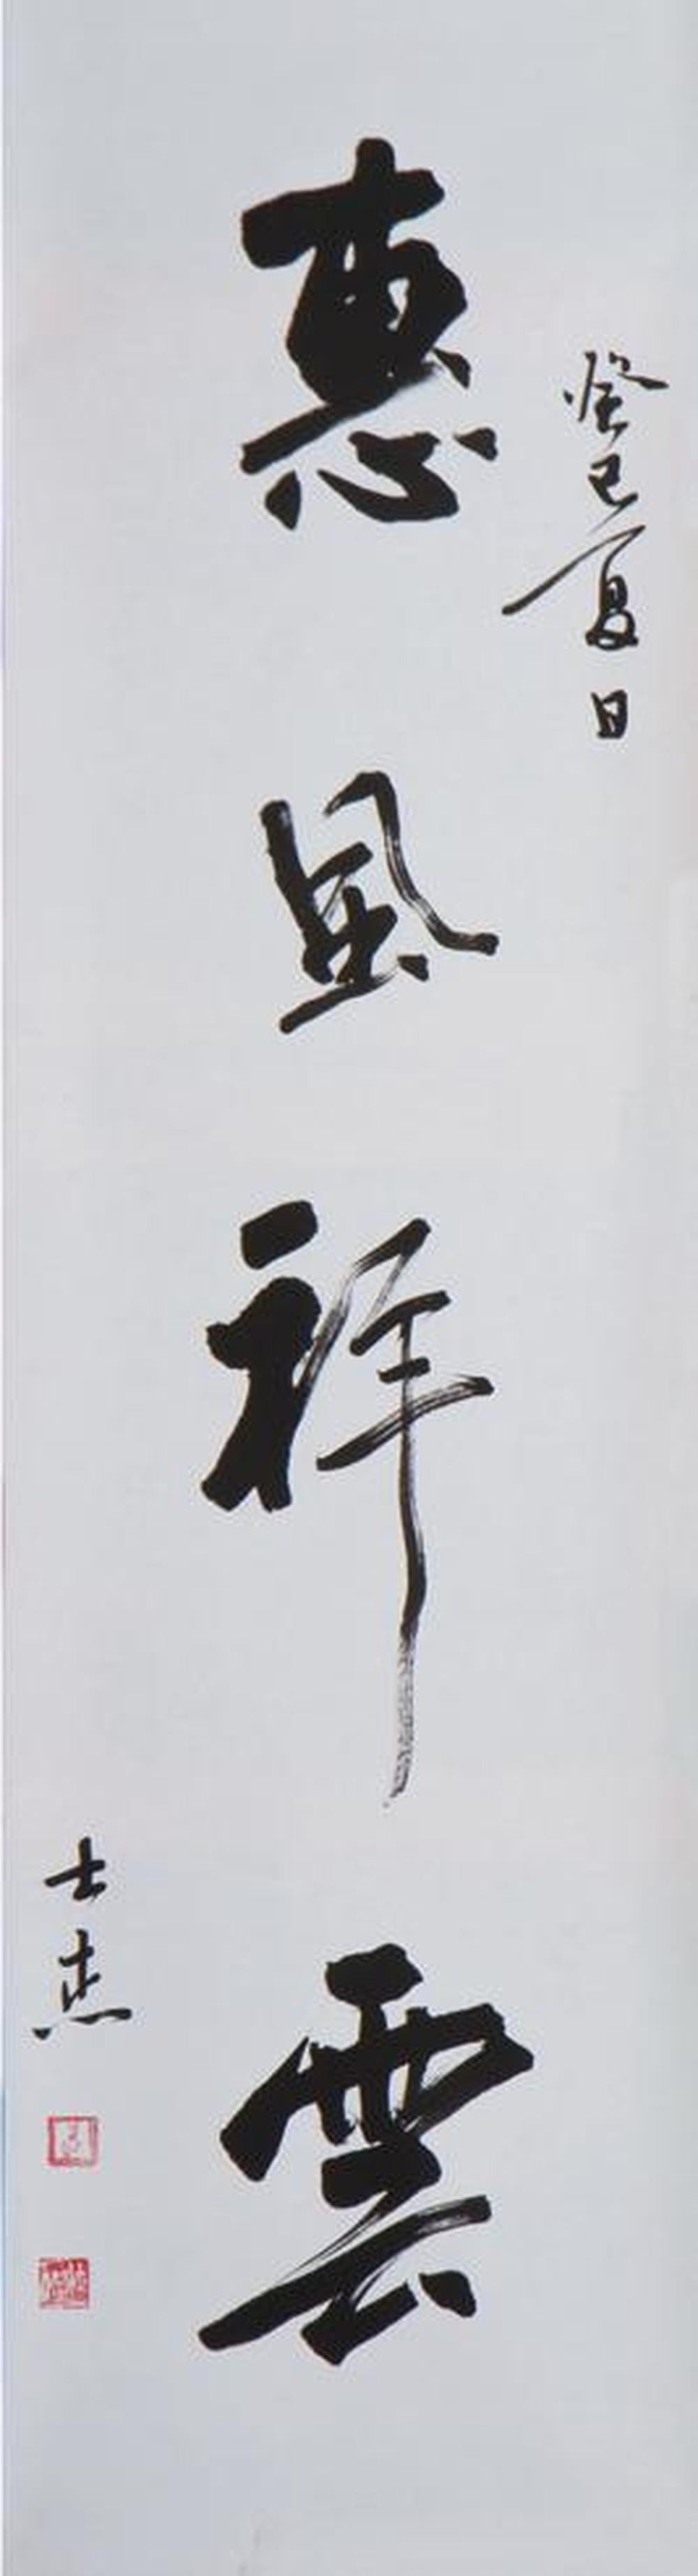 癸巳夏日
惠風祥雲
士杰